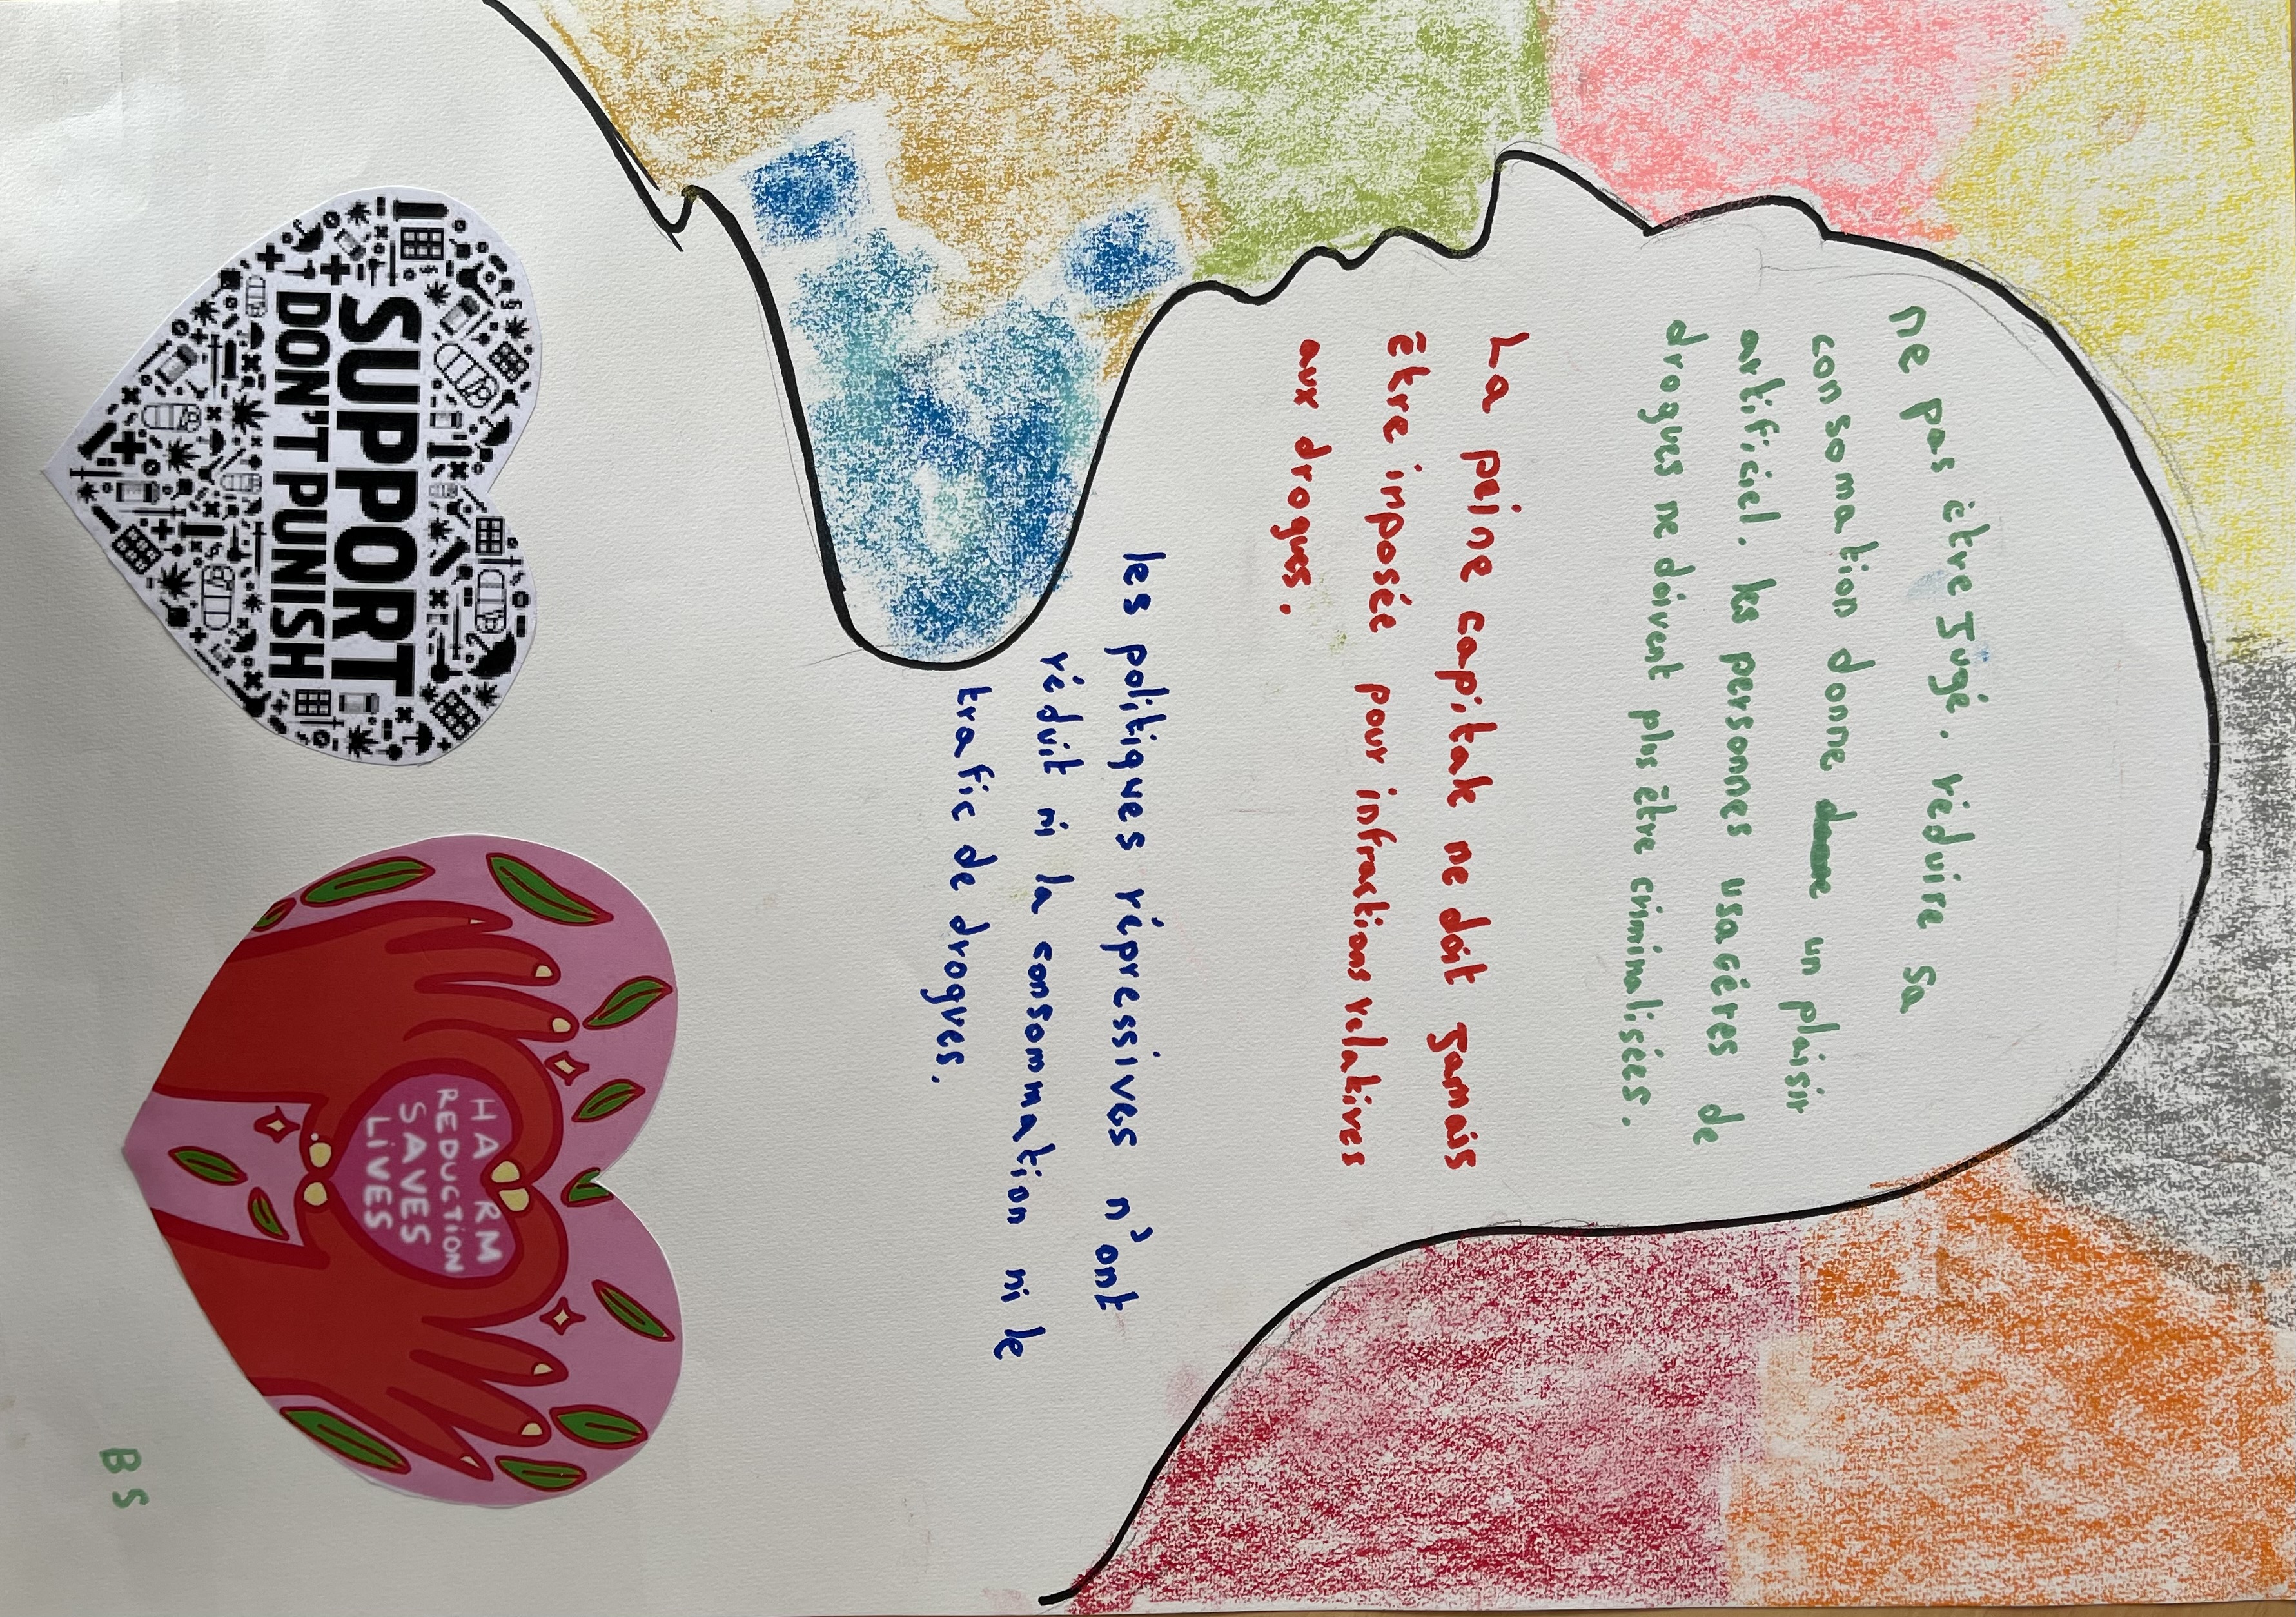 ne pas être Jugé. réduire sa
consomation donne un plaisir
artificiel. les personnes usagères de
drogues ne doivent plus être criminalisées.
La peine capitale ne doit Jamais
être inposée pour infractions relatives
aux drogues.
les politiques répressives n'ont
réduit ni la consommation ni le
trafic de drogues.
SUPPORT
DON'T PUNISH
HARM
REDUCTION
SAVES
LIVES
BS